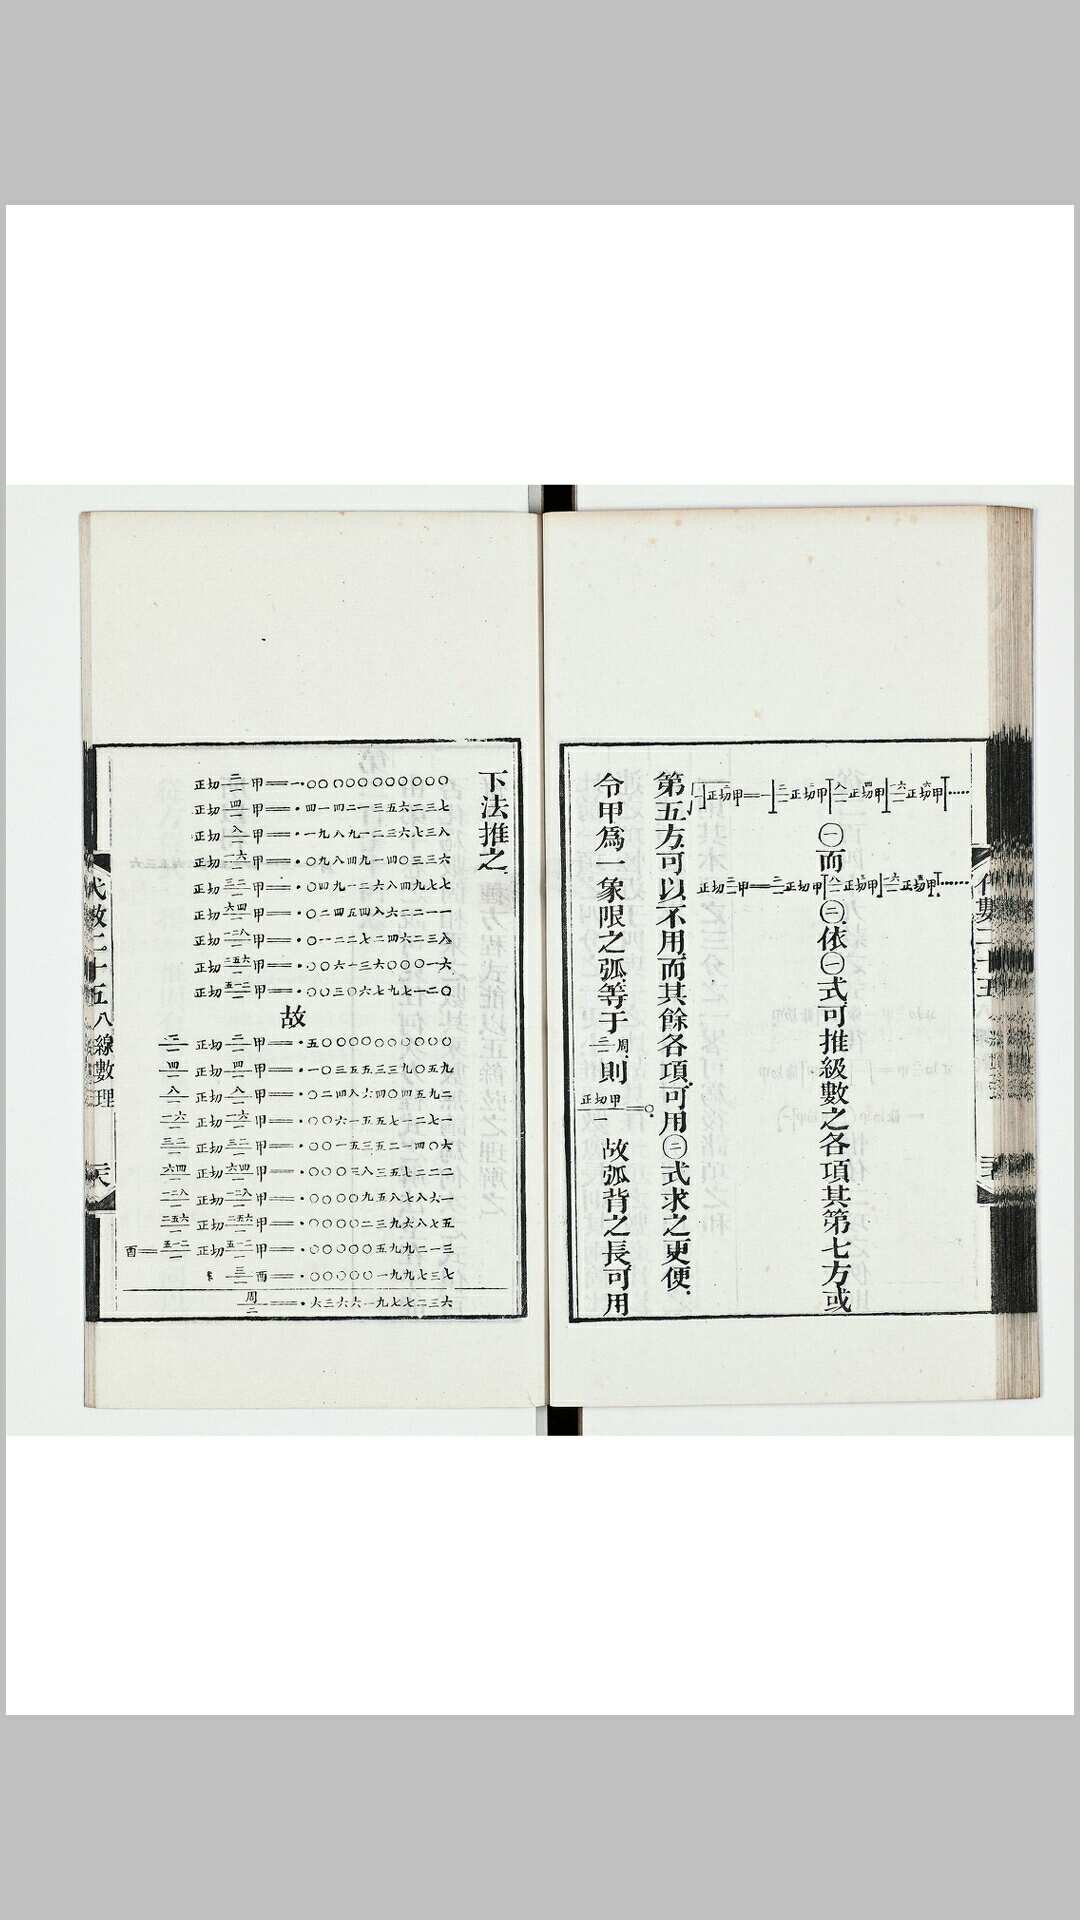 代數二十五
正切甲=一二一正切二一甲⊥八一正切四一甲⊥一六一正切八一甲⊥……
㊀而
㊁依㊀式可推級數之各項其第七方或
第五方可以不用而其餘各項可用㊁式求之更便
令甲爲一象限之弧等于二一周則正切甲一=〇故弧背之長可用
下法推之
正切二一甲=一·〇〇〇〇〇〇〇〇〇〇〇
正切四一甲=·四一四二一三五六二三七
正切八一甲=·一九八九一二三六七三八
正切一六一甲=·〇九八四九一四〇三三六
正切三二一甲=·〇四九一二六八四九七七
正切六四一甲=·〇二四五四八六二二一一
正切一二八一甲=·〇一二二七二四六二三八
正切二五六一甲=·〇〇六一三六〇〇〇一六
正切五一二一甲=·〇〇三〇六七九七一二〇
故
二一正切二一甲=·五〇〇〇〇〇〇〇〇〇〇
四一正切四一甲=·一〇三五五三三九〇五九
八一正切八一甲=·〇二四八六四〇四五九二
一六一正切一六一甲=·〇〇六一五五七一二七一
三二一正切三二一甲=·〇〇一五三五二一四〇六
六四一正切六四一甲=·〇〇〇三八三五七二二二
一二八一正切一二八一甲=·〇〇〇〇九五八七八六一
二五六一正切二五六一甲=·〇〇〇〇二三九六八七五
酉=五一二一正切五一二一甲=·〇〇〇〇〇五九九二一三
三一酉=·〇〇〇〇〇一九九七三七
周二=·六三六六一九七七二三六
代數二十五 八線數理 二六